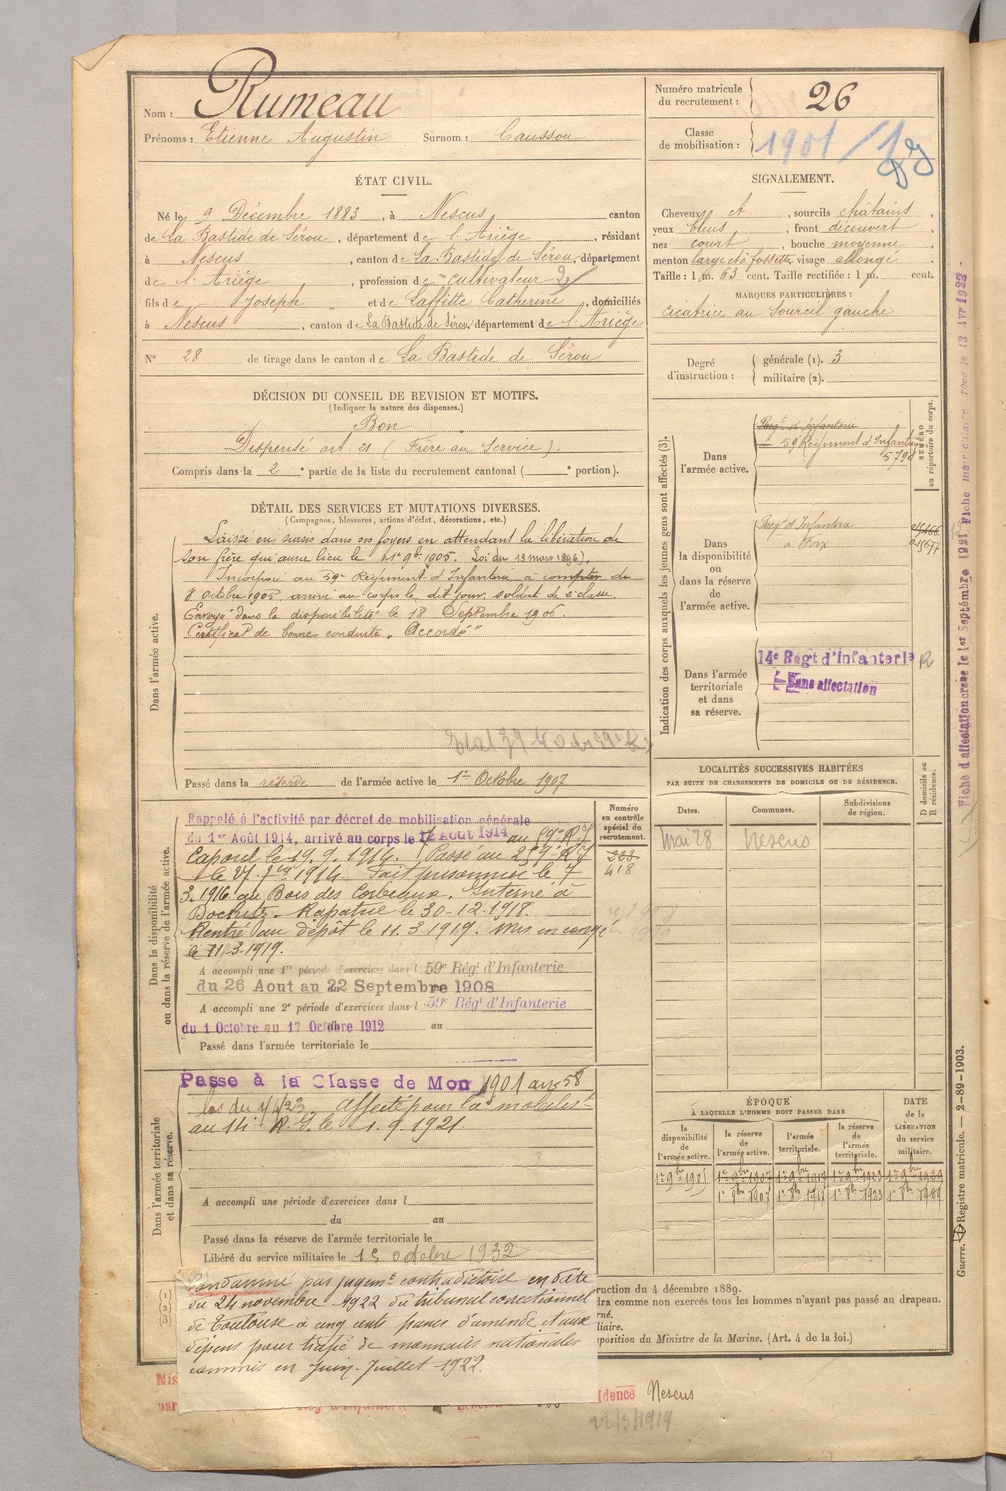 Nom : Rumeau
Prénoms : Etienne Augustin Surnom : Caussou
ÉTAT CIVIL.
Né le 9 Décembre 1883, à Nescus canton
de La Bastide de Sérou, département de l'Ariège, résidant
à Nescus, canton de La Bastide de Sérou, département
de l'Ariège, profession de cultivateur
fils de Joseph et de Laffitte Catherine, domiciliés
à Nescus, canton de La Bastide de Sérou, département de l'Ariège
N° 28 de tirage dans le canton de La Bastide de Sérou
DÉCISION DU CONSEIL DE REVISION ET MOTIFS.
(Indiquer la nature des dispenses.)
Bon
Dispensé art. 21 (Frère au Service).
Compris dans la 2e partie de la liste du recrutement cantonal ( e portion).
DÉTAIL DES SERVICES ET MUTATIONS DIVERSES.
(Campagnes, blessures, actions d'éclat, décorations, etc.)
Dans l'armée active.
Laissé en sursis dans ses foyers en attendant la libération de
son frère qui aura lieu le 1er 9bre 1905. Loi du 13 mars 1896).
Incorporé au 59e Régiment d'Infanterie à compter du
8 Octobre 1905, arrivé au corps le dit jour, soldat de 2e classe.
Envoyé dans la disponibilité le 18 Septembre 1906.
Certificat de bonne conduite "Accordé"
Passé dans la réserve de l'armée active le 1er Octobre 1907
Dans la disponibilité
ou dans la réserve de l'armée active.
Rappelé à l'activité par décret de mobilisation générale
du 1er Août 1914, arrivé au corps le 12 août 1914 au 59e R.I
Caporal le 19.9.1914. Passé au 259e R I
le 27 1914. Fait prisonnier le 7
3.1916 au Bois des Corbeaux. Interné à
Rapatrié le 30-12-1918.
Rentré au dépôt le 11.3.1919. Mis en congé
le 11.3.1919.
A accompli une 1re période d'exercices dans l 59e Régt d'Infanterie
du 26 Aout au 22 Septembre 1908
A accompli une 2e période d'exercices dans l 59e Régt d'Infanterie
du 1 Octobre au 17 Octobre 1912 au
Passé dans l'armée territoriale le
Numéro
au contrôle
spécial du
recrutement.
223
418
Dans l'armée territoriale
et dans sa réserve.
Passé à la Classe de Mob 1901 art 58
loi du 1/4/23 Affecté pour la mobilis
au 14e R.I. le 1.9.1921
A accompli une période d'exercices dans l
du au
Passé dans la réserve de l'armée territoriale le
Libéré du service militaire le 15 octobre 1932
(1)
(2)
(3)
Condamné par jugemt contradictoire en date
du 24 novembre 1922 du tribunal correctionnel
de Toulouse à cinq cents francs d'amende et aux
dépens pour trafic de monnaies nationales
commis en Juin-Juillet 1922.
Numéro matricule
du recrutement : 26
Classe
de mobilisation : 1901
SIGNALEMENT.
Cheveux et, sourcils châtains,
yeux bleus, front découvert,
nez court, bouche moyenne,
menton large et à fossette, visage allongé.
Taille : 1 m. 63 cent. Taille rectifiée : 1 m. cent.
MARQUES PARTICULIÈRES :
cicatrice au Sourcil gauche
Degré
d'instruction :
générale (1). 3
militaire (2).
Indication des corps auxquels les jeunes gens sont affectés (3).
NUMÉRO
au répertoire du corps.
Dans
l'armée active.
Régt d'Infanterie
59e Régiment d'Infanterie
5790
Dans
la disponibilité
ou
dans la réserve
de
l'armée active.
Régt d'Infanterie
à Foix
Dans l'armée
territoriale
et dans
sa réserve.
14e Régt d'Infanterie R
Sans affectation
LOCALITÉS SUCCESSIVES HABITÉES
PAR SUITE DE CHANGEMENTS DE DOMICILE OU DE RÉSIDENCE.
Dates. Communes. Subdivisions
de région.
D domicile ou
R résidence.
Mai 28 Nescus
ÉPOQUE
À LAQUELLE L'HOMME DOIT PASSER DANS
DATE
de la
LIBÉRATION
du service
militaire.
la
disponibilité
de
l'armée active.
la réserve
de
l'armée active.
l'armée
territoriale.
la réserve
de
l'armée
territoriale.
ruction du 4 décembre 1889.
dra comme non exercés tous les hommes n'ayant pas passé au drapeau.
rné.
liaire.
sposition du Ministre de la Marine. (Art. 4 de la loi.)
idence Nescus
22/3/1919
Fiche d'affectation créée le 1er Septembre 1921
Guerre. Registre matricule. — 2-89-1903.